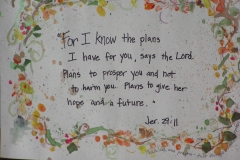 "For I know the plans
I have for you, says the Lord.
Plans to prosper you and not
to harm you. Plans to give her
hope and a future."
Jer. 29:11